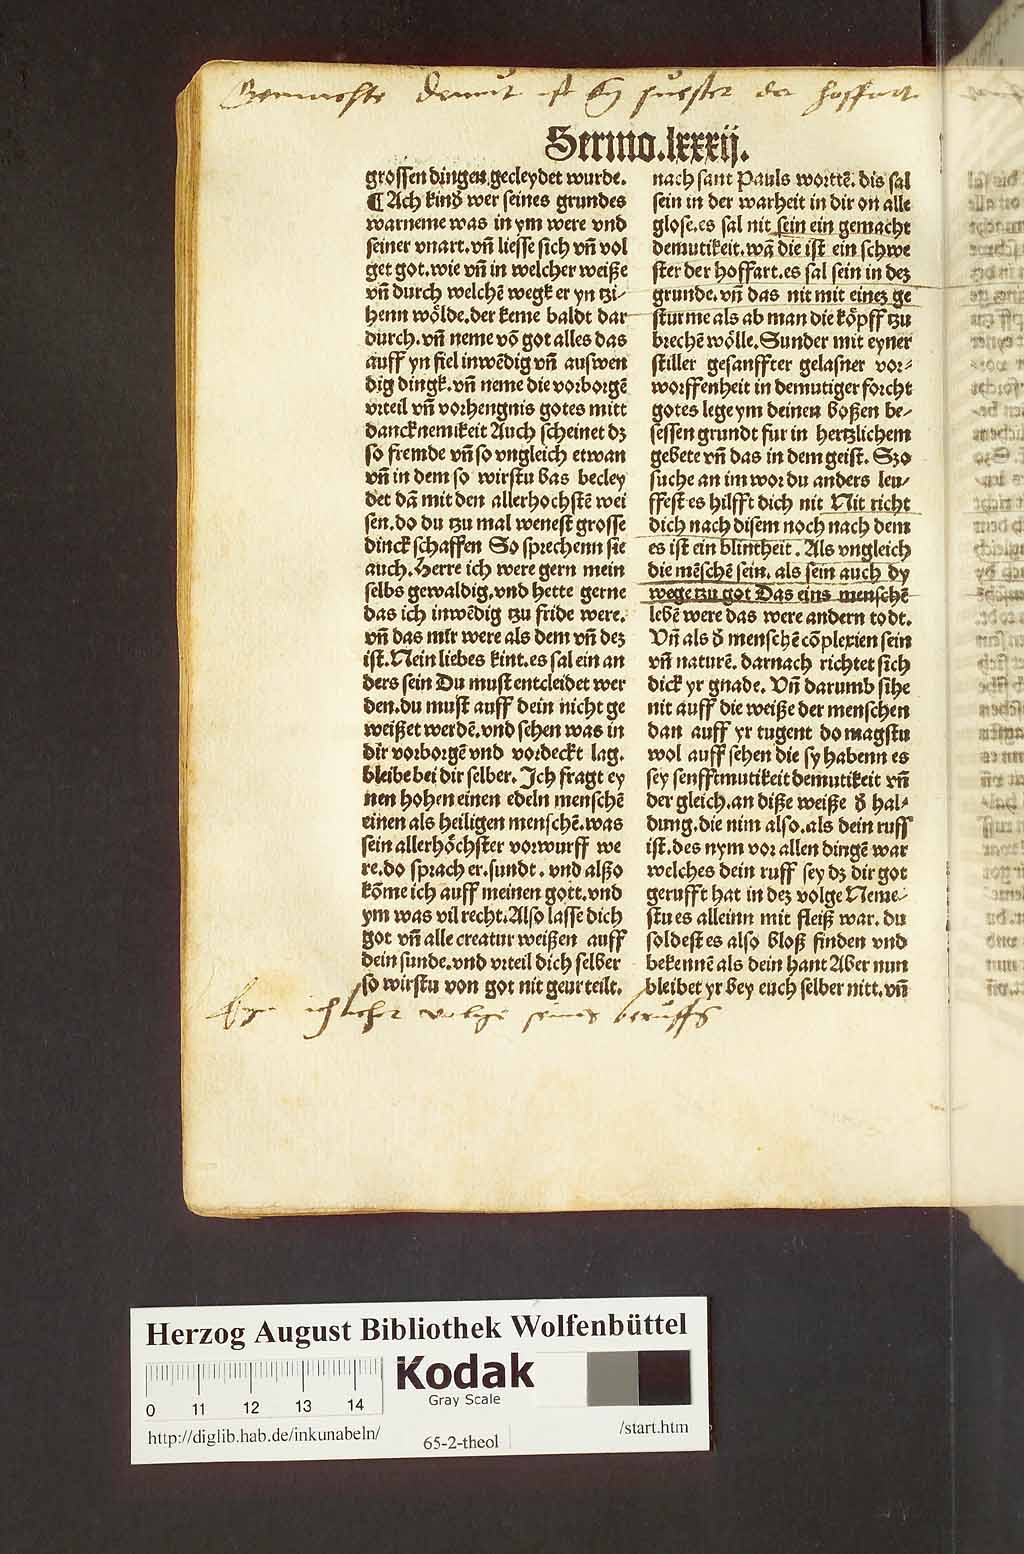 Gemachte demut ist ey swester der hoffart
Sermo.lxxxij.
grossen dingen gecleydet wurde.
¶ Ach kind wer seines grundes
warneme was in ym were vnd
seiner vnart. vn̄ liesse sich vn̄ vol
get got. wie vn̄ in welcher weiße
vn̄ durch welchē wegk er yn tzi-
henn wölde. der keme baldt dar
durch. vn̄ neme vō got alles das
auff yn fiel inwēdig vn̄ auswen
dig dingk. vn̄ neme die vorborgē
vrteil vn̄ vorhengnis gotes mitt
dancknemikeit Auch scheinet dz
so fremde vn̄ so vngleich etwan
vn̄ in dem so wirstu bas becley
det dā mit den allerhochstē wei
sen. do du tzu mal wenest grosse
dinck schaffen So sprechenn sie
auch. Herre ich were gern mein
selbs gewaldig. vnd hette gerne
das ich inwēdig tzu fride were.
vn̄ das mir were als dem vn̄ dez
ist. Nein liebes kint. es sal ein an
ders sein Du must entcleidet wer
den. du must auff dein nicht ge
weißet werdē. vnd sehen was in
dir vorborgē vnd vordeckt lag.
bleibe bei dir selber. Ich fragt ey
nen hohen einen edeln menschē
einen als heiligen menschē. was
sein allerhöchster vorwurff we
re. do sprach er. sundt. vnd alßo
kōme ich auff meinen gott. vnd
ym was vil recht. Also lasse dich
got vn̄ alle creatur weißen auff
dein sunde. vnd vrteil dich selber
so wirstu von got nit geurteilt.
nach sant Pauls worttē. dis sal
sein in der warheit in dir on alle
glose. es sal nit sein ein gemacht
demutikeit. wā die ist ein schwe
ster der hoffart. es sal sein in dez
grunde. vn̄ das nit mit einez ge
sturme als ab man die köpff tzu
brechē wölle. Sunder mit eyner
stiller gesanffter gelasner vor-
worffenheit in demutiger forcht
gotes lege ym deinen boßen be-
sessen grundt fur in hertzlichem
gebete vn̄ das in dem geist. Szo
suche an im wor du anders leu-
ffest es hilfft dich nit Nit richt
dich nach disem noch nach dem
es ist ein blintheit. Als vngleich
die mēschē sein. als sein auch dy
wege tzu got Das eins menschē
lebē were das were andern todt.
Vn̄ als d̄ menschē cōplexien sein
vn̄ naturē. darnach richtet sich
dick yr gnade. Vn̄ darumb sihe
nit auff die weiße der menschen
dan auff yr tugent do magstu
wol auff sehen die sy habenn es
sey senfftmutikeit demutikeit vn̄
der gleich. an diße weiße d̄ hal-
dung. die nim also. als dein ruff
ist. des nym vor allen dingē war
welches dein ruff sey dz dir got
gerufft hat in dez volge Neme-
stu es alleinn mit fleiß war. du
soldest es also bloß finden vnd
bekennē als dein hant Aber nun
bleibet yr bey euch selber nitt. vn̄
Eyn ichlicher volge seines beruffs
Herzog August Bibliothek Wolfenbüttel
Kodak
Gray Scale
0 11 12 13 14
http://diglib.hab.de/inkunabeln/
65-2-theol
/start.htm